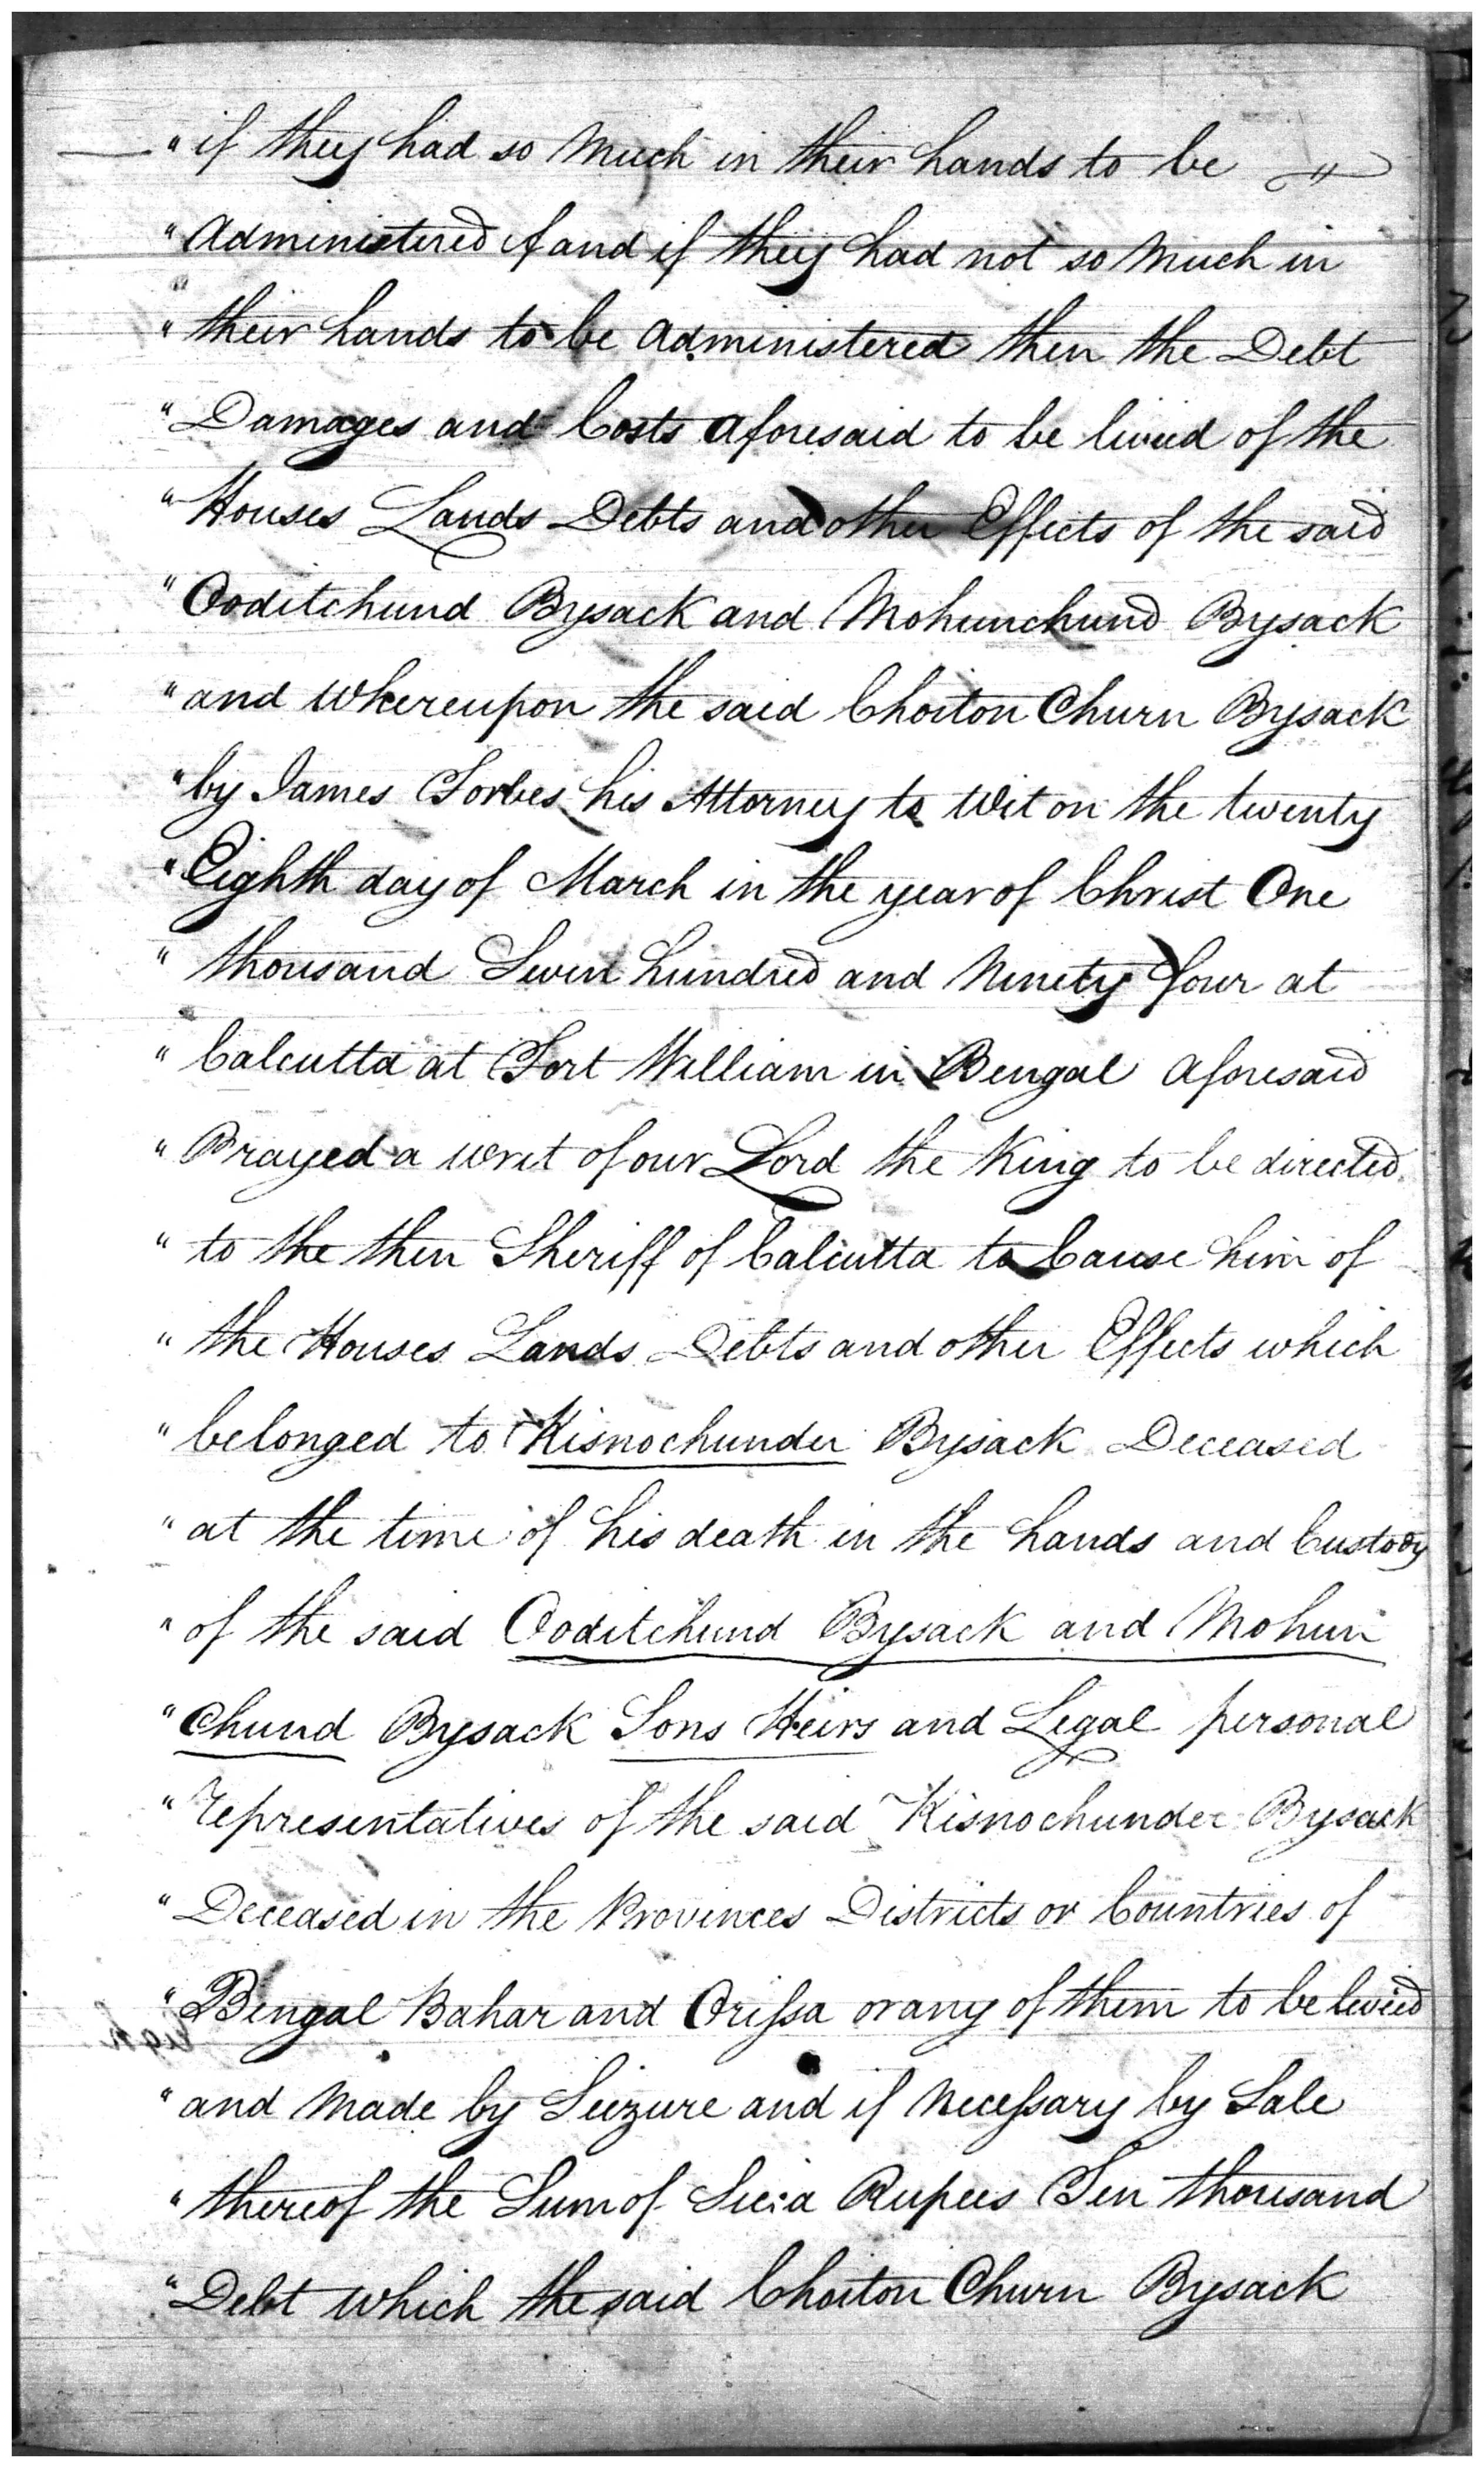 " if they had so Much in their hands to be "
" Administered & and if they had not so Much in
" their hands to be Administered then the Debt
" Damages and Costs Aforesaid to be livied of the
" Houses Lands Debts and other Effects of the said
" Ooditchund Bysack and Mohunchund Bysack
" and Whereupon the said Choiton Churn Bysack
" by James Forbes his Attorney to Wit on the twenty
" Eighth day of March in the year of Christ One
" thousand Seven hundred and Ninety four at
" Calcutta at Fort William in Bengal Aforesaid
" Prayed a writ of our Lord the King to be directed
" to the then Sheriff of Calcutta to Cause him of
" the Houses Lands Debts and other Effects which
" belonged to Kisnochunder Bysack Deceased
" at the time of his death in the hands and Custody
" of the said Ooditchund Bysack and Mohun
" Chund Bysack Sons Heirs and Legal personal
" representatives of the said Kisnochunder Bysack
" Deceased in the Provinces Districts or Countries of
" Bengal Bahar and Orissa or any of them to be levied
" and Made by Seizure and if Necessary by Sale
" thereof the Sum of Sicca Rupees Ten thousand
" Debt Which the said Choiton Churn Bysack